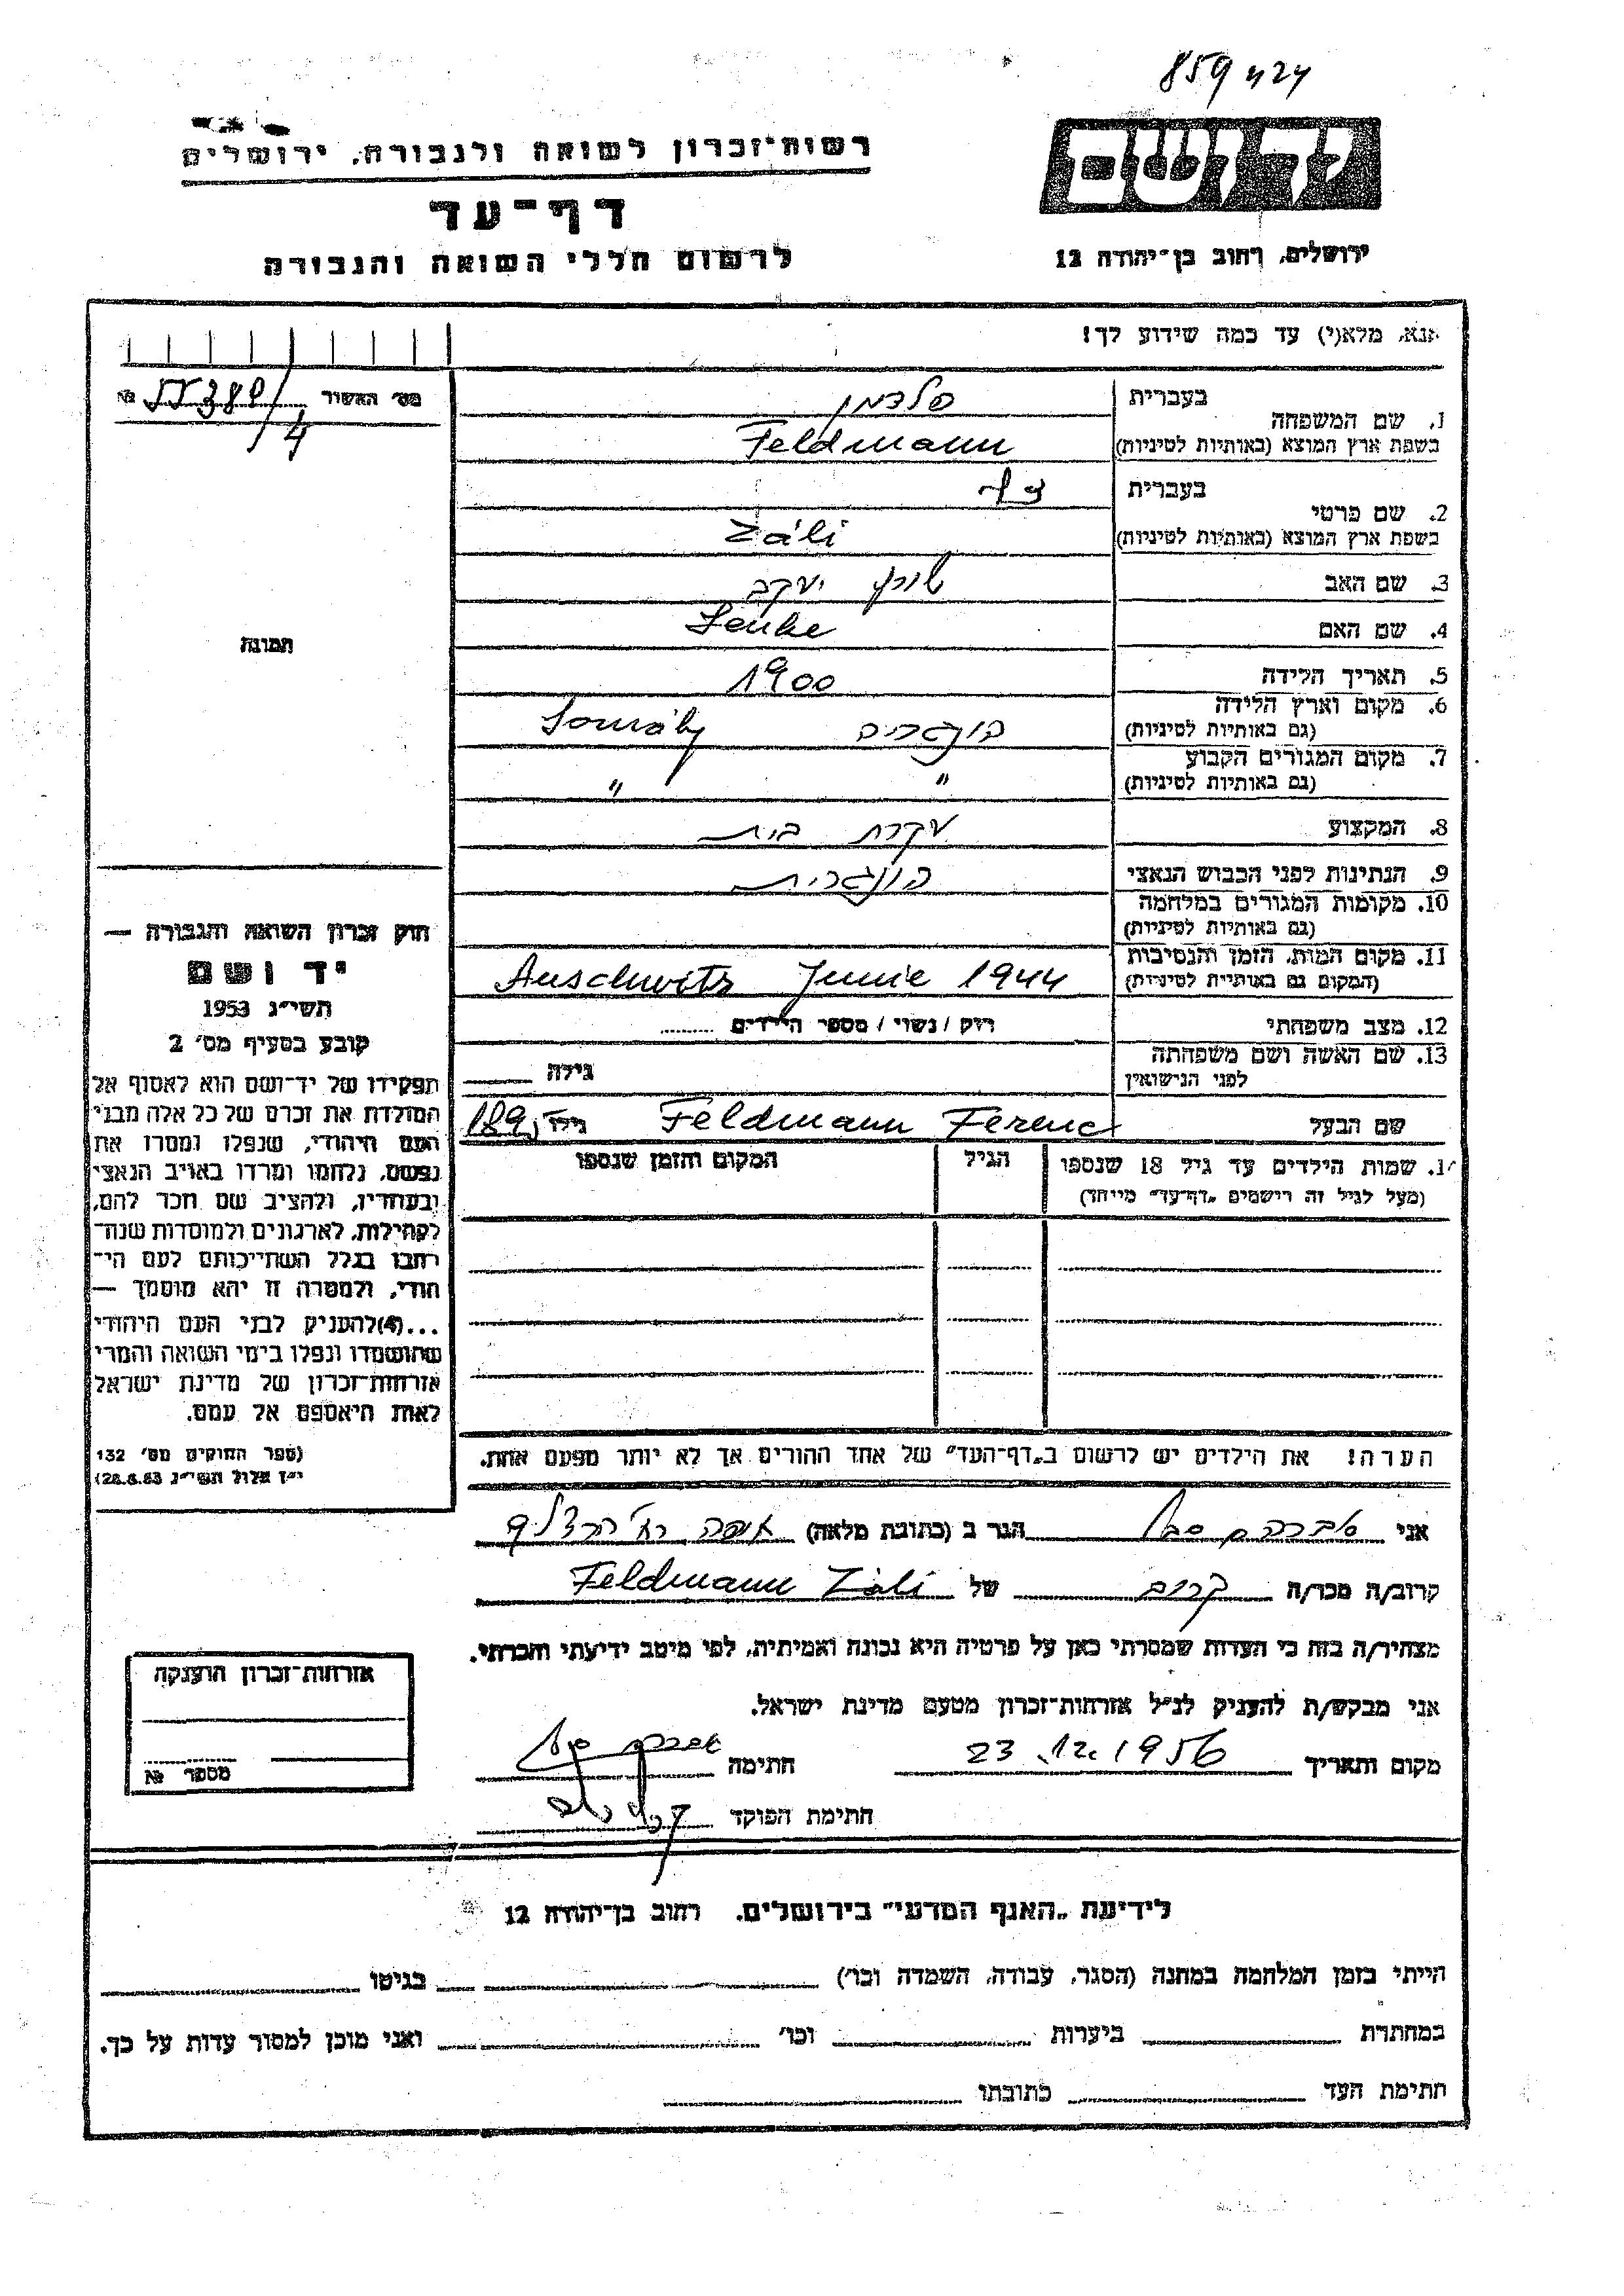 859424
רשות־זכרון לשואה ולגבורה, ירושלים
יד ושם
דף־עד
ירושלים, רחוב בן־יהודה 12
לרשום חללי השואה והגבורה
אנא, מלא(י) עד כמה שידוע לך!
מס׳ האשור №
בעברית פלדמן
1. שם המשפחה
בשפת ארץ המוצא (באותיות לטיניות) Feldmann
בעברית
2. שם פרטי
בשפת ארץ המוצא (באותיות לטיניות) Záli
3. שם האב יעקב
4. שם האם
5. תאריך הלידה 1900
6. מקום וארץ הלידה הונגריה
(גם באותיות לטיניות)
7. מקום המגורים הקבוע " "
(גם באותיות לטיניות)
8. המקצוע עקרת בית
9. הנתינות לפני הכבוש הנאצי הונגרית
10. מקומות המגורים במלחמה
(גם באותיות לטיניות)
11. מקום המות, הזמן והנסיבות
(המקום גם באותיות לטיניות) Auschwitz Junie 1944
12. מצב משפחתי רווק / נשוי / מספר הילדים
13. שם האשה ושם משפחתה
לפני הנישואין גילה
שם הבעל Feldmann Ferenc גילו
שמות הילדים עד גיל 18 שנספו הגיל המקום והזמן שנספו
(מעל לגיל זה רישמים „דף־עד״ מייחד)
תמונה
חוק זכרון השואה והגבורה —
יד ושם
תשי״ג 1953
קובע בסעיף מס׳ 2
תפקידו של יד־ושם הוא לאסוף אל
המולדת את זכרם של כל אלה מבני
העם היהודי, שנפלו ומסרו את
נפשם, נלחמו ומרדו באויב הנאצי
ובעוזריו, ולהציב שם וזכר להם,
לקהילות, לארגונים ולמוסדות שנח־
רבו בגלל השתייכותם לעם הי־
הודי, ולמטרה זו יהא מוסמך —
...(4) להעניק לבני העם היהודי
שהושמדו ונפלו בימי השואה והמרי
אזרחות־זכרון של מדינת ישראל
לאות היאספם אל עמם.
(ספר החוקים מס׳ 132
י״ז אלול תשי״ג 28.8.53)
הערה! את הילדים יש לרשום ב„דף־העד״ של אחד ההורים אך לא יותר מפעם אחת.
אני אברהם הגר ב (כתובת מלאה)
קרוב/ה מכר/ה קרוב של Feldmann Záli
מצהיר/ה בזה כי העדות שמסרתי כאן על פרטיה היא נכונה ואמיתית, לפי מיטב ידיעתי והכרתי.
אני מבקש/ת להעניק לנ״ל אזרחות־זכרון מטעם מדינת ישראל.
מקום ותאריך 23.12.1956 חתימה אברהם
חתימת הפוקד
אזרחות־זכרון הוענקה
מספר №
לידיעת „האגף המדעי״ בירושלים, רחוב בן־יהודה 12
הייתי בזמן המלחמה במחנה (הסגר, עבודה, השמדה וכו׳) בגיטו
במחתרת ביערות וכו׳ ואני מוכן למסור עדות על כך.
חתימת העד כתובתו